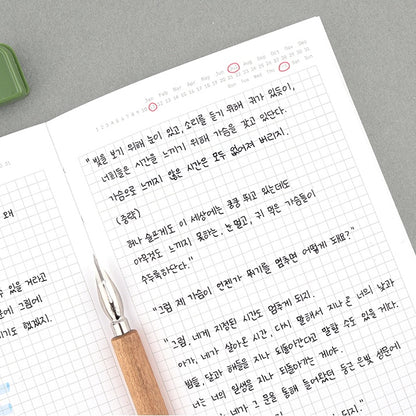 왜
있을 거라고
그림에
기도 했겠지.
Jan Feb Mar Apr May Jun Aug Sep Oct Nov Dec
Mon Tue Wed Thu Sat Sun
"빛을 보기 위해 눈이 있고, 소리를 듣기 위해 귀가 있듯이,
너희들은 시간을 느끼기 위해 가슴을 갖고 있단다.
가슴으로 느끼지 않은 시간은 모두 없어져 버리지.
(중략)
허나 슬프게도 이 세상에는 쿵쿵 뛰고 있는데도
아무것도 느끼지 못하는, 눈 멀고, 귀 먹은 가슴들이
수두룩하단다."
"그럼 제 가슴이 언젠가 뛰기를 멈추면 어떻게 돼요?"
"그럼, 네게 지정된 시간도 멈추게 되지.
아가, 네가 살아온 시간, 다시 말해서 지나온 너의 낮과
밤들, 달과 해들을 지나 되돌아간다고 말할 수도 있을 게다.
너는 너의 일생을 지나 되돌아가는 게야.
네가 그 문을 통해 들어왔던 둥근 은빛 성문에
되지."